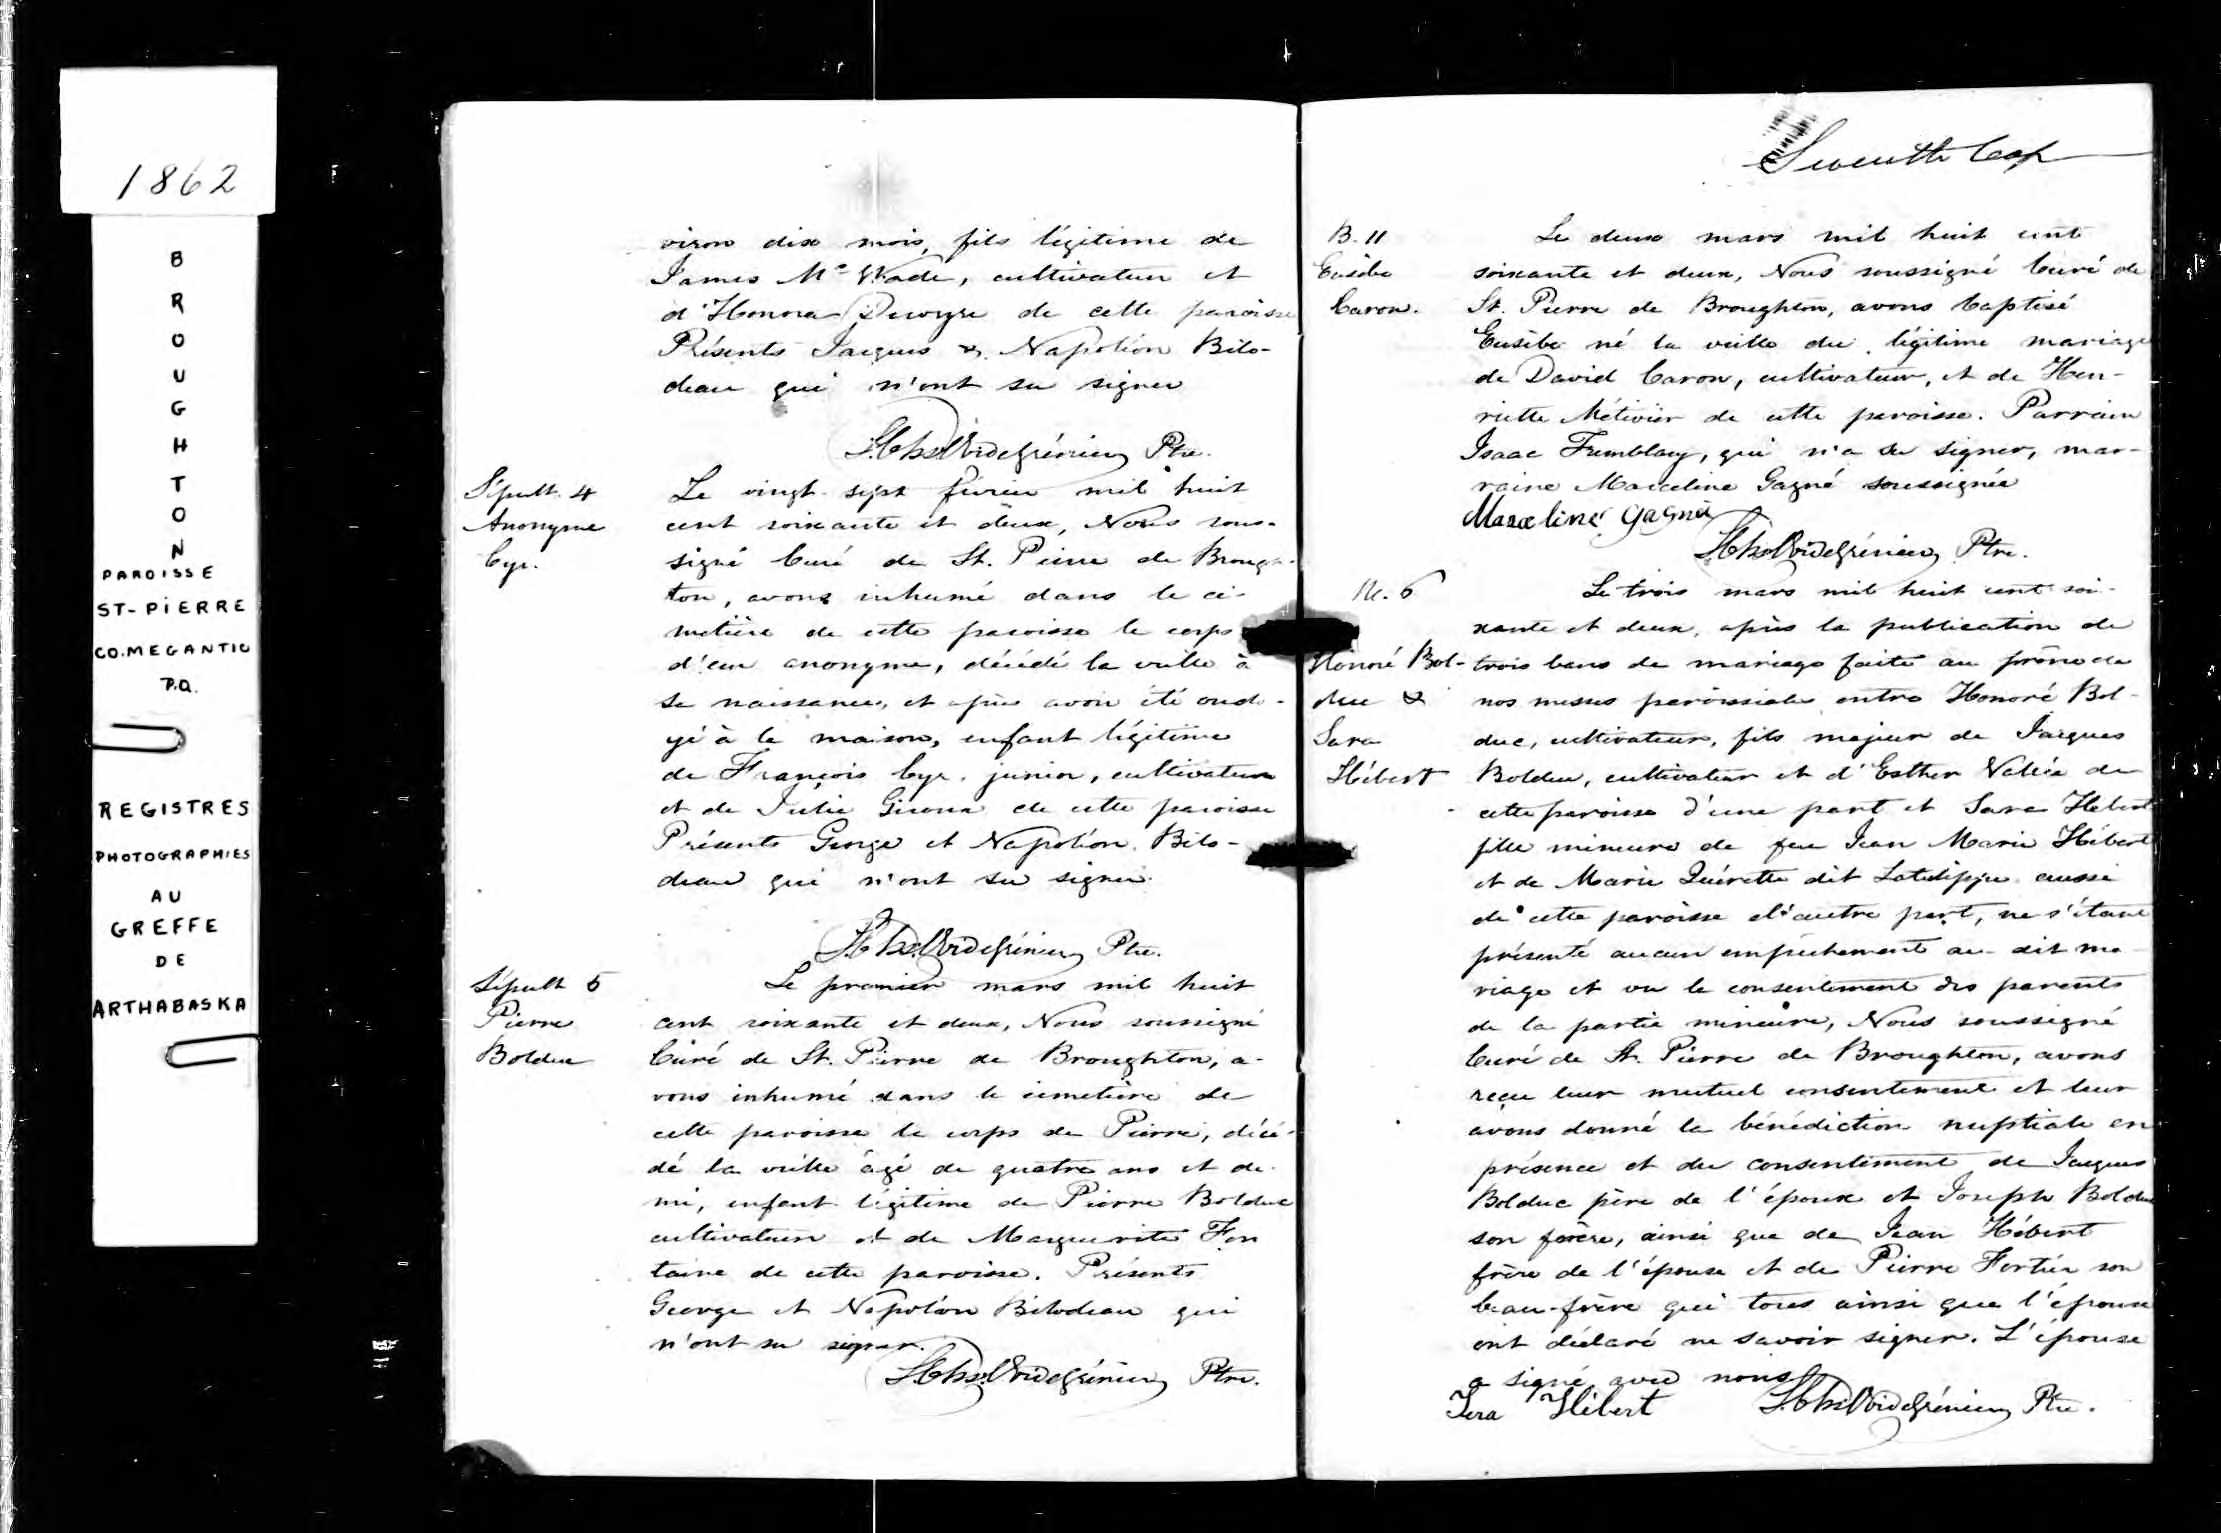 1862
BROUGHTON
PAROISSE
ST-PIERRE
CO. MEGANTIC
P.Q.
REGISTRES
PHOTOGRAPHIES
AU
GREFFE
DE
ARTHABASKA
viron dix mois, fils légitime de
James Mc Wade, cultivateur et
d'Honora de cette paroisse
Présents Jacques & Napoléon Bilo-
deau qui n'ont su signer
Ptre.
Sépult. 4
Anonyme
Cyr.
Le vingt-sept février mil huit
cent soixante et deux, Nous sous-
signé Curé de St. Pierre de Brough-
ton, avons inhumé dans le ci-
metière de cette paroisse le corps
d'un anonyme, décédé la veille à
sa naissance, et après avoir été ondo-
yé à la maison, enfant légitime
de François Cyr, junior, cultivateur
et de Julie Giroux de cette paroisse
Présents George et Napoléon Bilo-
deau qui n'ont su signer.
Ptre.
Sépult 5
Pierre
Bolduc
Le premier mars mil huit
cent soixante et deux, Nous soussigné
Curé de St. Pierre de Broughton, a-
vons inhumé dans le cimetière de
cette paroisse le corps de Pierre, décé-
dé la veille âgé de quatre ans et de-
mi, enfant légitime de Pierre Bolduc
cultivateur et de Marguerite Fon
taine de cette paroisse. Présents
George et Napoléon Bilodeau qui
n'ont su signer.
Ptre.
Seventh
B. 11
Eusèbe
Caron.
Le deux mars mil huit cent
soixante et deux, Nous soussigné Curé de
St. Pierre de Broughton, avons baptisé
Eusèbe né la veille du légitime mariage
de David Caron, cultivateur, et de Hen-
riette Métivier de cette paroisse. Parrain
Isaac Tremblay, qui n'a su signer, mar-
raine Marceline Gagné soussignée
Marceline Gagné
Ptre.
M. 6
Honoré Bol-
duc &
Sara
Hébert
Le trois mars mil huit cent soi-
xante et deux, après la publication de
trois bans de mariage faite au prône de
nos messes paroissiales entre Honoré Bol-
duc, cultivateur, fils majeur de Jacques
Bolduc, cultivateur et d'Esther Vallée de
cette paroisse d'une part et Sara Hébert
fille mineure de feu Jean Marie Hébert
et de Marie Quérette dit Latulippe aussi
de cette paroisse d'autre part, ne s'étant
présenté aucun empêchement au dit ma-
riage et vu le consentement des parents
de la partie mineure, Nous soussigné
Curé de St. Pierre de Broughton, avons
reçu leur mutuel consentement et leur
avons donné la bénédiction nuptiale en
présence et du consentement de Jacques
Bolduc père de l'époux et Joseph Bolduc
son frère, ainsi que de Jean Hébert
frère de l'épouse et de Pierre Fortier son
beau-frère qui tous ainsi que l'époux
ont déclaré ne savoir signer. L'épouse
a signé avec nous
Sera Hébert
Ptre.